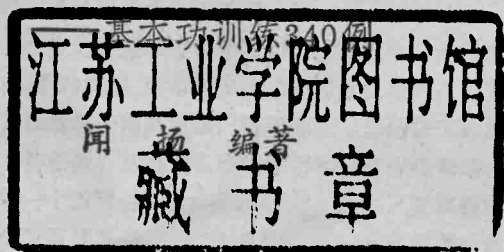 ——基本功训练340例
江苏工业学院图书馆
闻扬 编著
藏书章